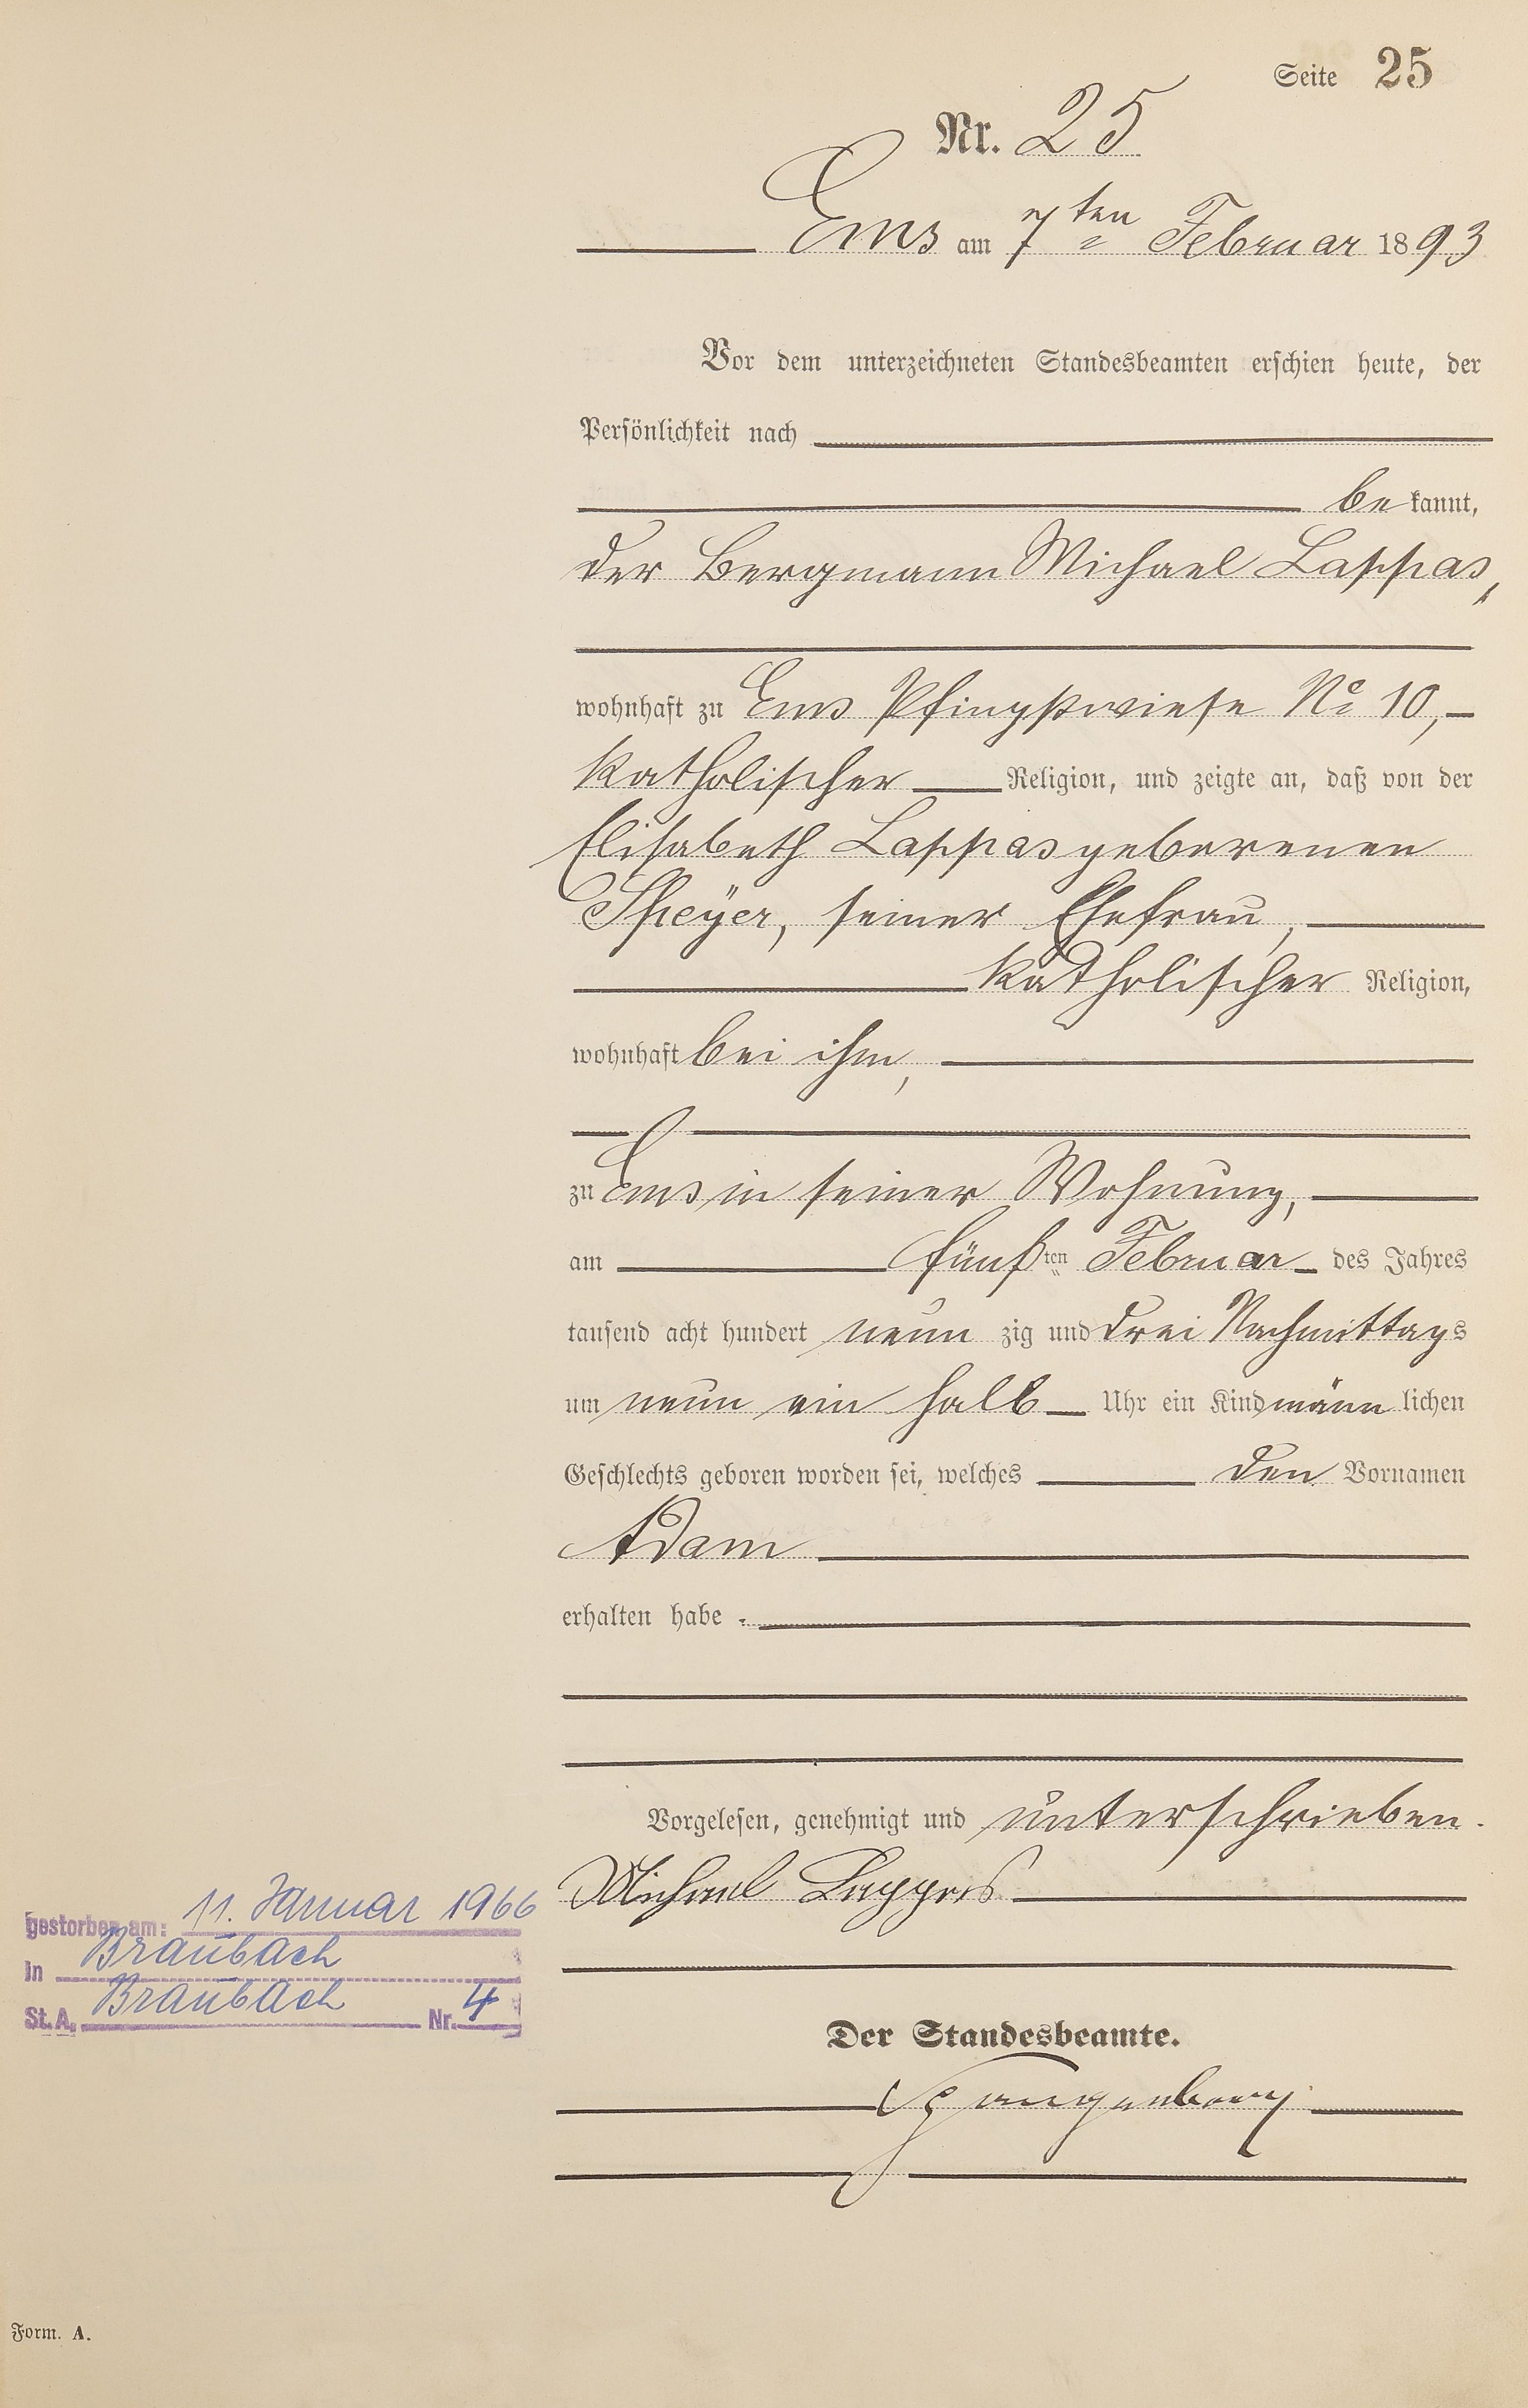 Seite 25
Nr. 25
Ems am 7ten Februar 1893
Vor dem unterzeichneten Standesbeamten erschien heute, der
Persönlichkeit nach
bekannt,
der Bergmann Michael Lappas,
wohnhaft zu Ems Pfingstwiese No 10,
katholischer Religion, und zeigte an, daß von der
Elisabeth Lappas geborenen
Speÿer, seiner Ehefrau,
katholischer Religion,
wohnhaft bei ihm,
zu Ems in seiner Wohnung,
am fünften Februar des Jahres
tausend acht hundert neunzig und drei Nachmittags
um neun ein halb Uhr ein Kind männlichen
Geschlechts geboren worden sei, welches den Vornamen
Adam
erhalten habe.
Vorgelesen, genehmigt und unterschrieben.
Michael Lappas
gestorben am: 11. Januar 1966
in Braubach
St. A. Braubach Nr. 4
Der Standesbeamte.
Spangenberg
Form. A.